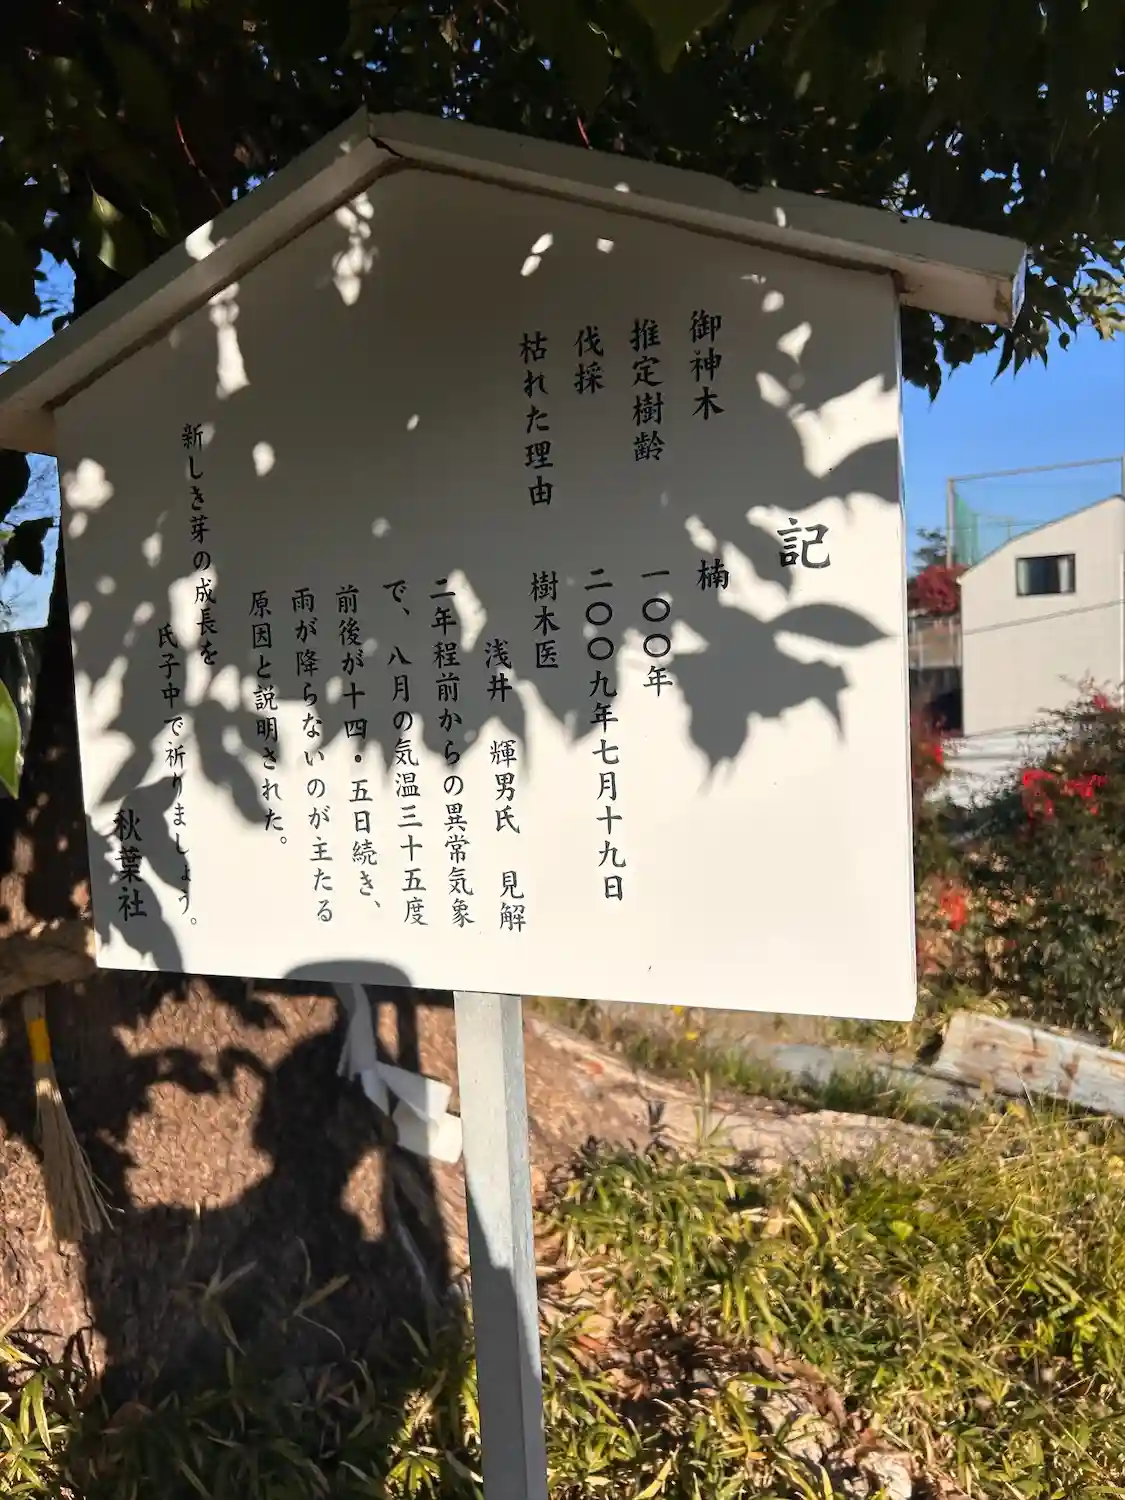 記
御神木 楠
推定樹齢 一〇〇年
伐採 二〇〇九年七月十九日
枯れた理由 樹木医
浅井 輝男氏 見解
二年程前からの異常気象
で、八月の気温三十五度
前後が十四・五日続き、
雨が降らないのが主たる
原因と説明された。
新しき芽の成長を
氏子中で祈りましょう。
秋葉社